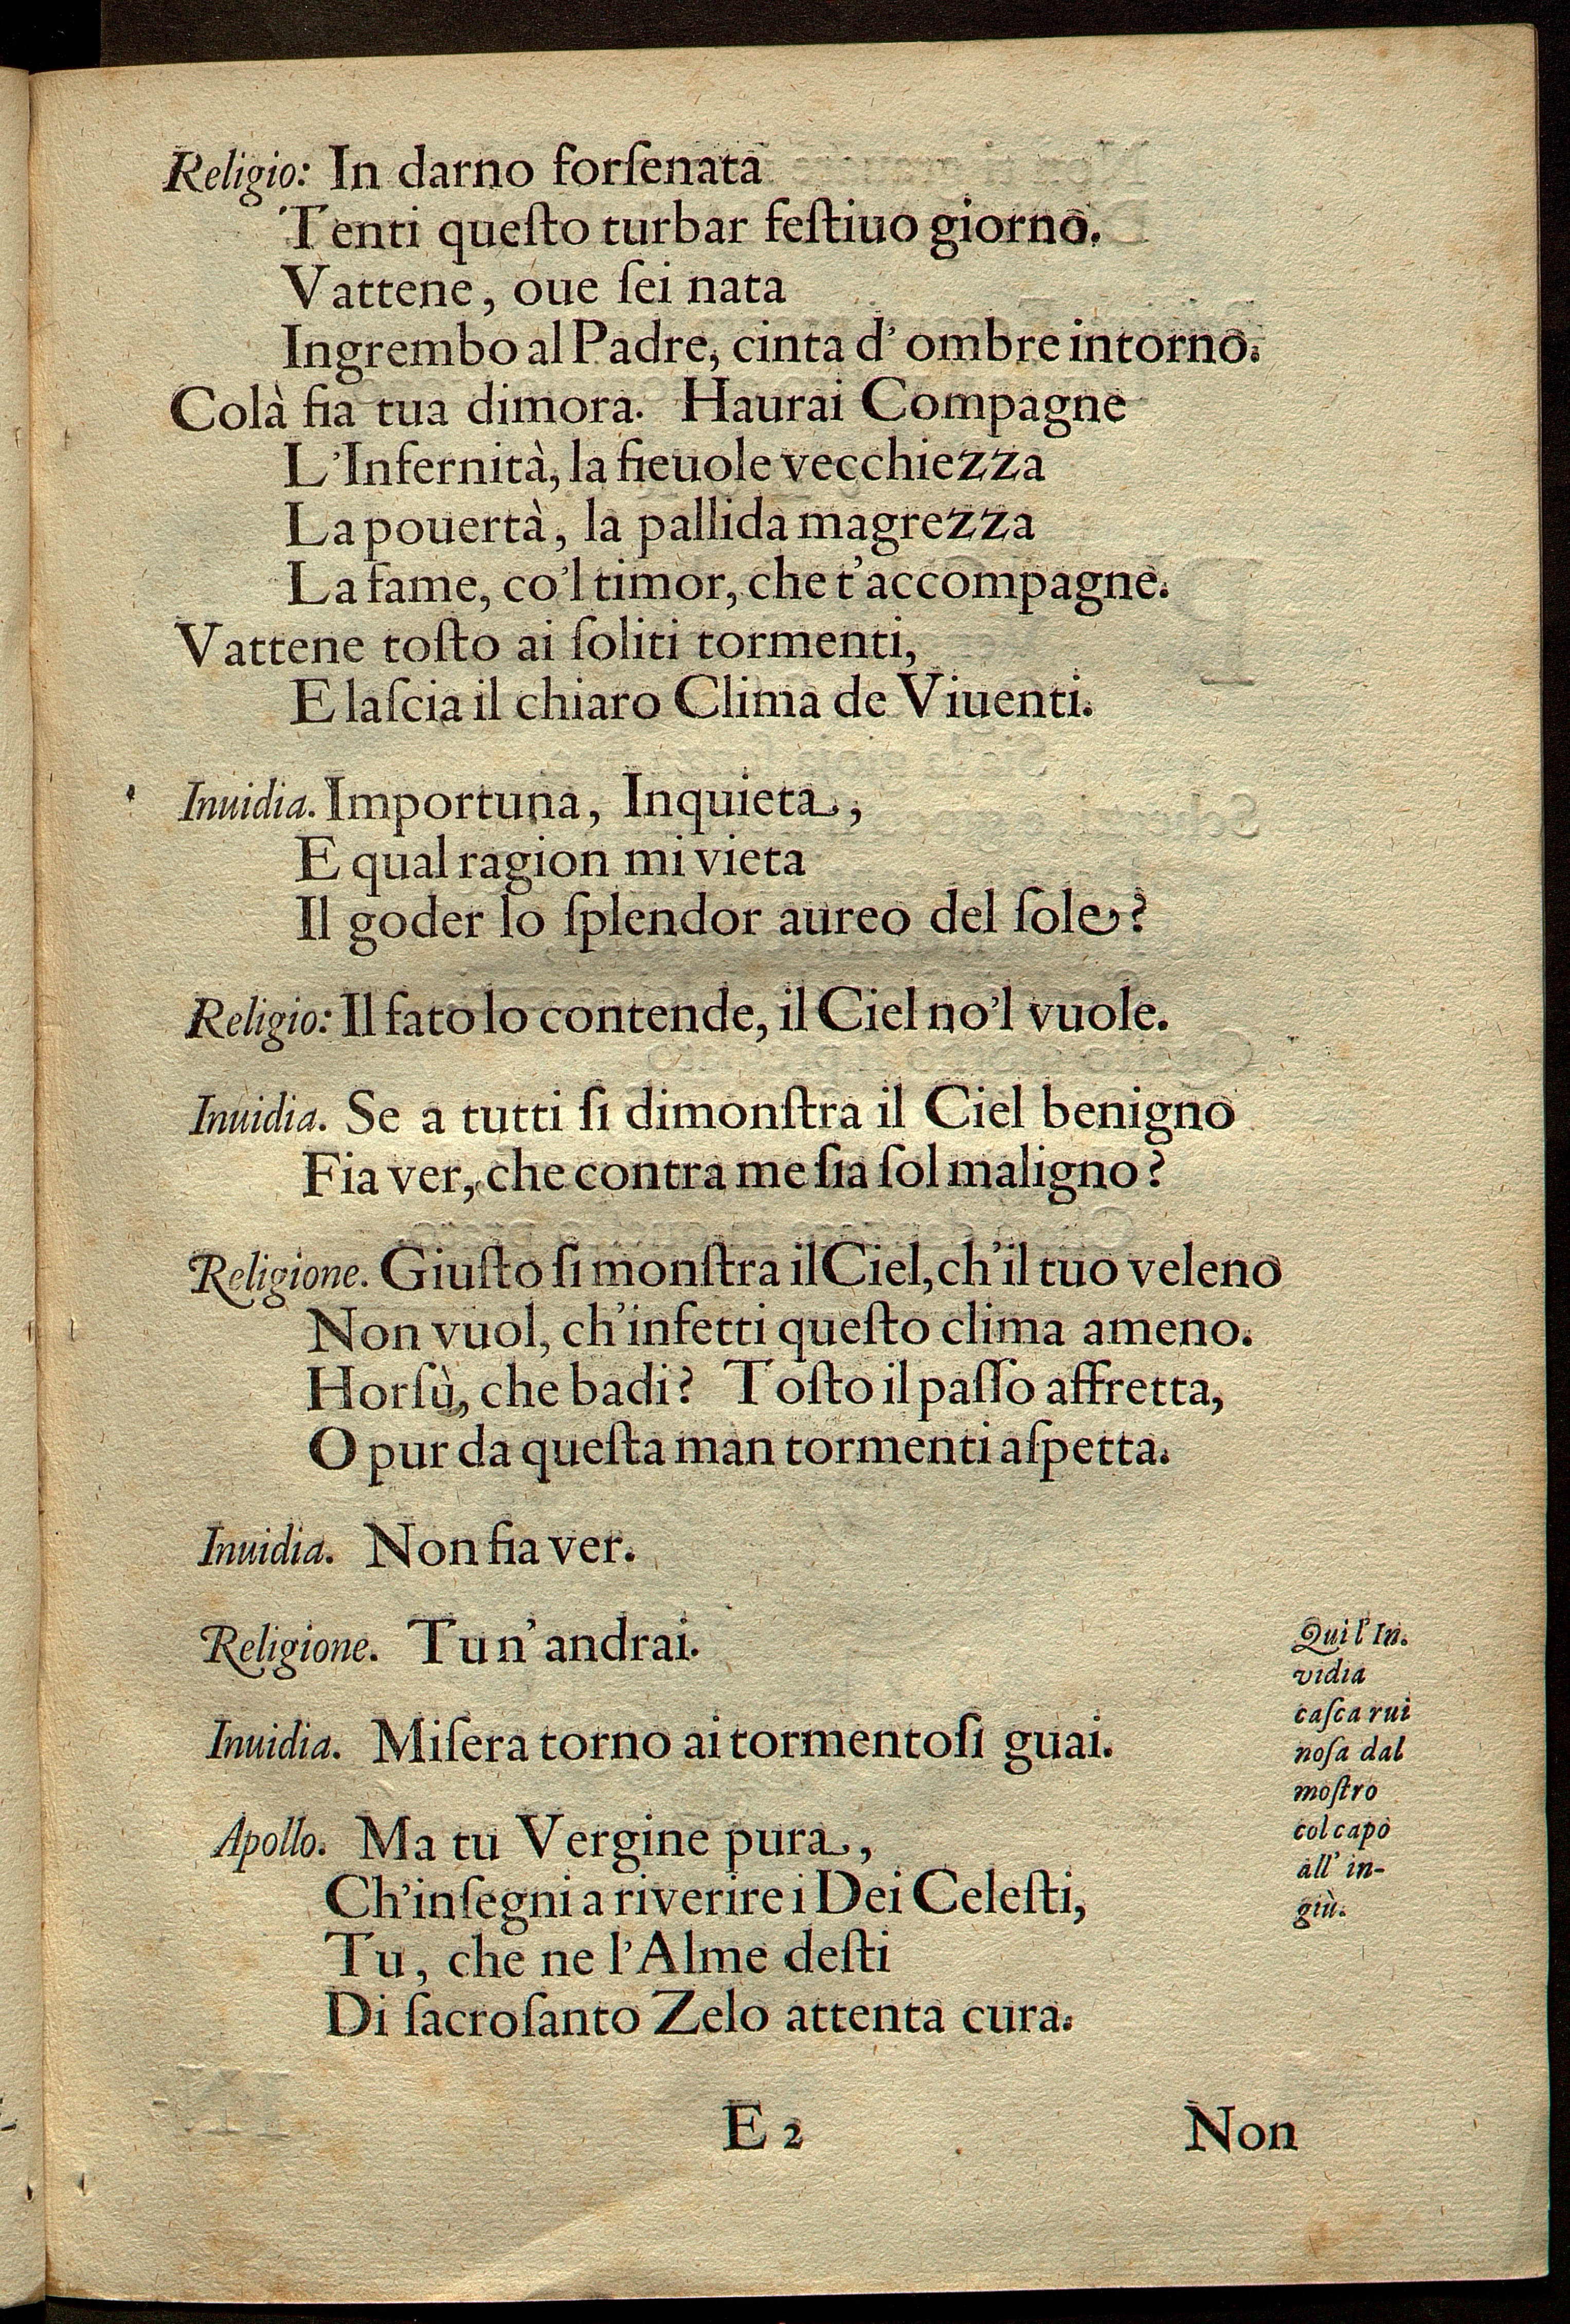 Religio: In darno forſenata
Tenti queſto turbar feſtiuo giorno.
Vattene, oue ſei nata
Ingrembo al Padre, cinta d' ombre intorno.
Colà fia tua dimora. Haurai Compagne
L'Infernità, la fieuole vecchiezza
La pouertà, la pallida magrezza
La fame, co'l timor, che t'accompagne.
Vattene toſto ai ſoliti tormenti,
E laſcia il chiaro Clima de Viuenti.
Inuidia. Importuna, Inquieta,
E qual ragion mi vieta
Il goder lo ſplendor aureo del ſole?
Religio: Il fato lo contende, il Ciel no'l vuole.
Inuidia. Se a tutti ſi dimonſtra il Ciel benigno
Fia ver, che contra me ſia ſol maligno?
Religione. Giuſto ſi monſtra il Ciel, ch'il tuo veleno
Non vuol, ch'infetti queſto clima ameno.
Horſù, che badi? Toſto il paſſo affretta,
O pur da queſta man tormenti aſpetta.
Inuidia. Non fia ver.
Religione. Tu n'andrai.
Inuidia. Miſera torno ai tormentoſi guai.
Qui l'In.
vidia
caſca rui
noſa dal
moſtro
col capo
all' in-
giù.
Apollo. Ma tu Vergine pura,
Ch'inſegni a riverire i Dei Celeſti,
Tu, che ne l'Alme deſti
Di ſacroſanto Zelo attenta cura.
E 2
Non